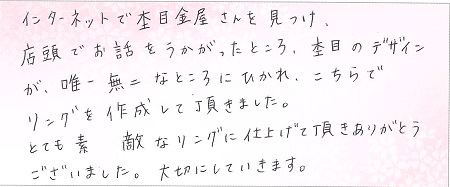 インターネットで杢目金屋さんを見つけ、
店頭でお話をうかがったところ、杢目のデザイン
が、唯一無二なところにひかれ、こちらで
リングを作成して頂きました。
とても素敵なリングに仕上げて頂きありがとう
ございました。大切にしていきます。